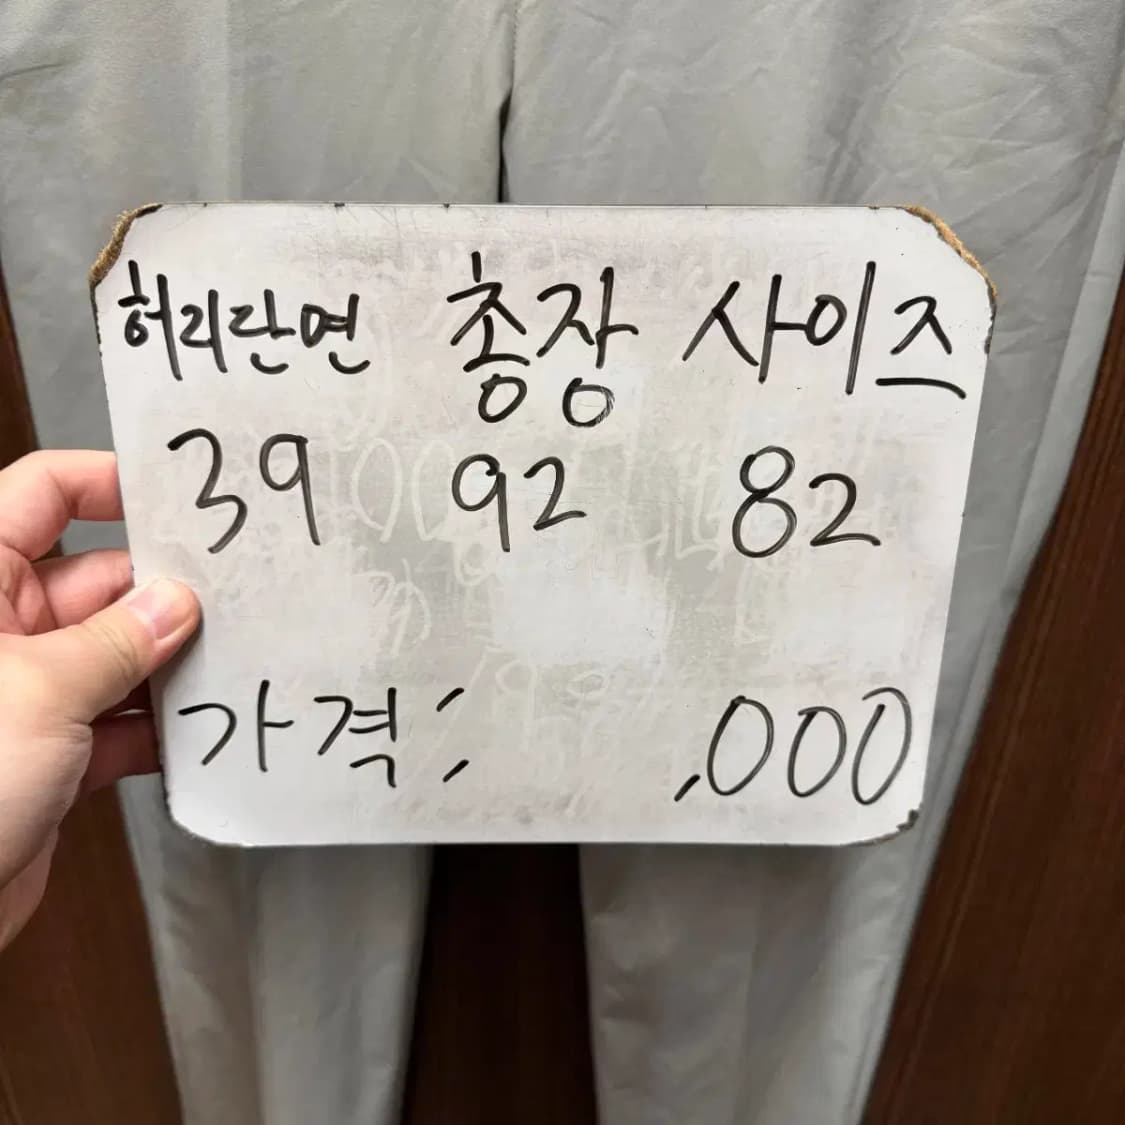 허리단면 총장 사이즈
39 92 82
가격: ,000